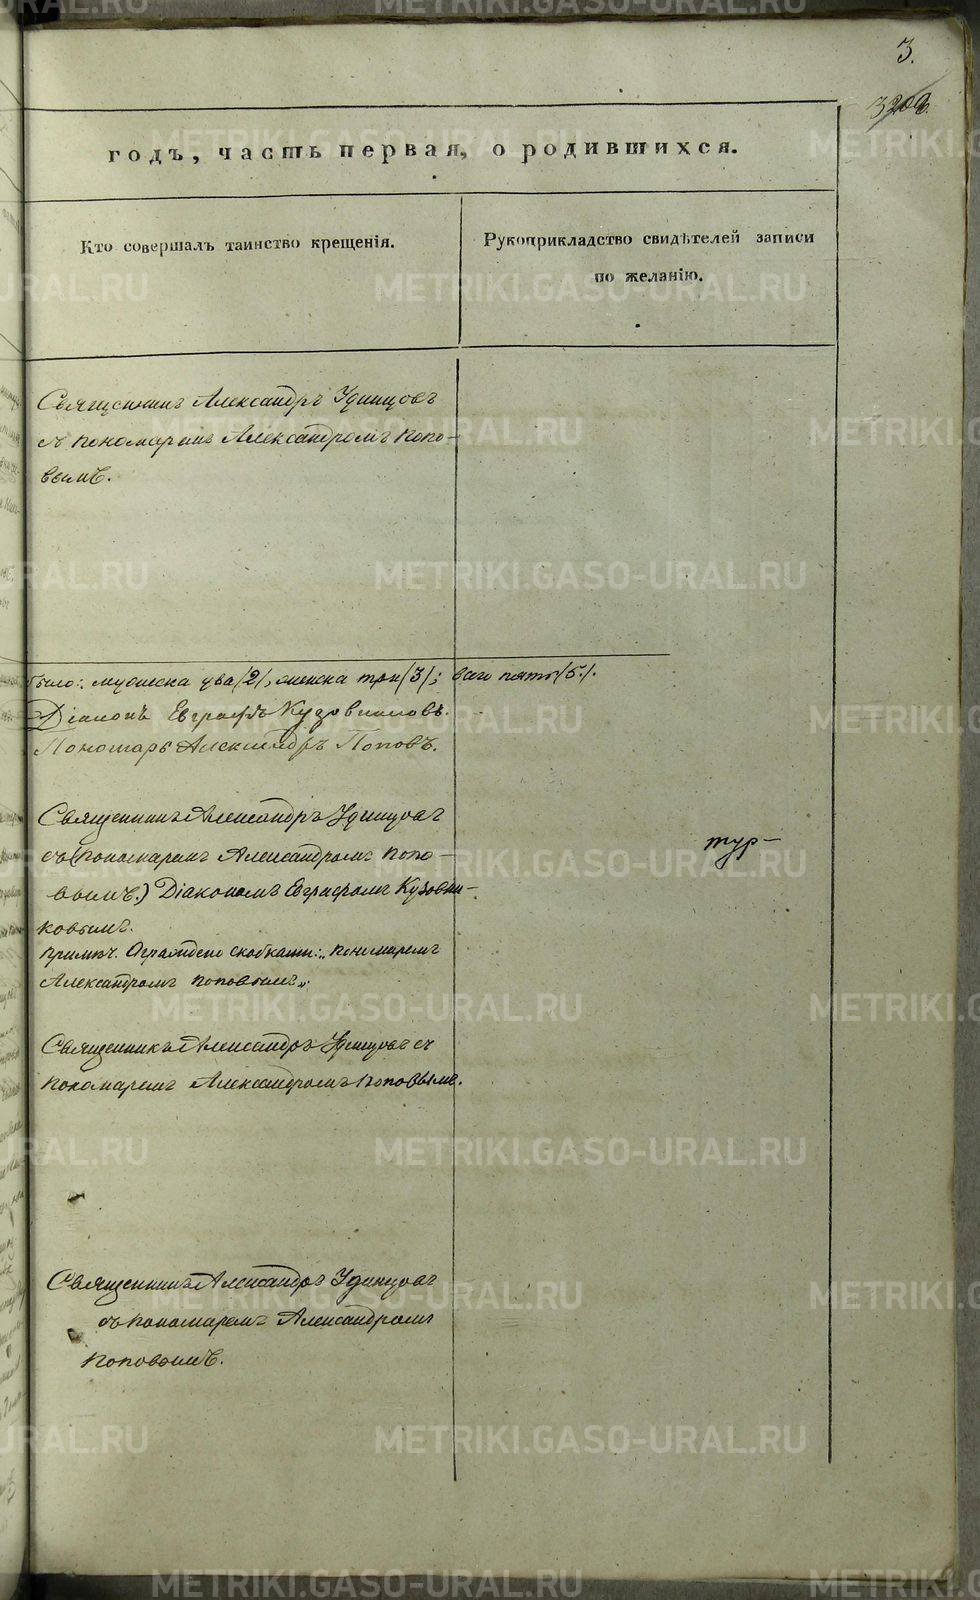 3.
годъ, часть первая, о родившихся.
Кто совершалъ таинство крещенія.
Рукоприкладство свидѣтелей записи
по желанію.
Священникъ Александръ Удинцовъ
съ пономаремъ Александромъ Попо-
вымъ.
было: мужеска два /2/, женска три /3/; всего пять /5/.
Діаконъ Евграфъ Кузовниковъ.
Пономарь Александръ Поповъ.
Священникъ Александръ Удинцовъ
съ (пономаремъ Александромъ Попо-
вымъ.) Діакономъ Евграфомъ Кузовни-
ковымъ.
Примѣч. Ограждено скобками: „пономаремъ
Александромъ Поповымъ„.
Священникъ Александръ Удинцовъ съ
пономаремъ Александромъ Поповымъ.
Священникъ Александръ Удинцовъ
съ пономаремъ Александромъ
Поповымъ.
METRIKI.GASO-URAL.RU